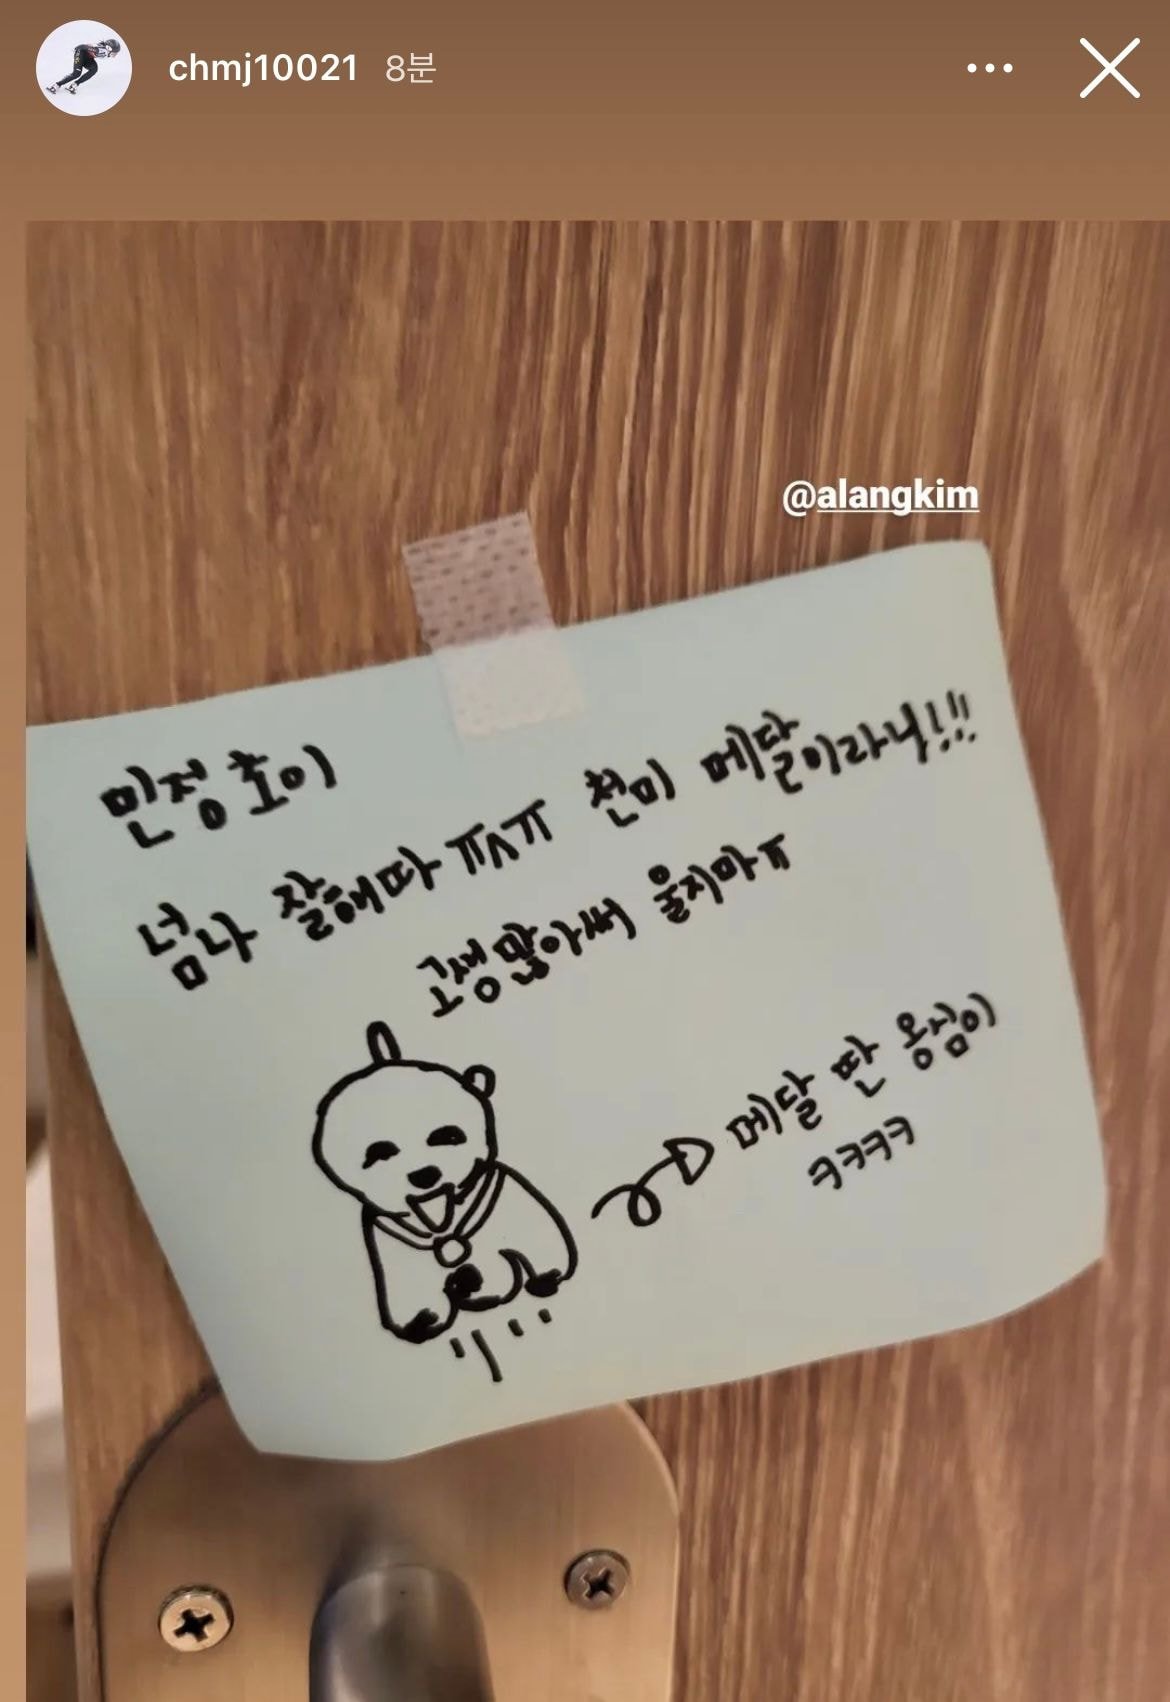 chmj10021 8분
@alangkim
민정 효이
넘나 잘해따 ㅠ^ㅠ 천미 메달이라니!!!
고생 많아써 울지마ㅠ
메달 딴 옹심이
ㅋㅋㅋㅋ